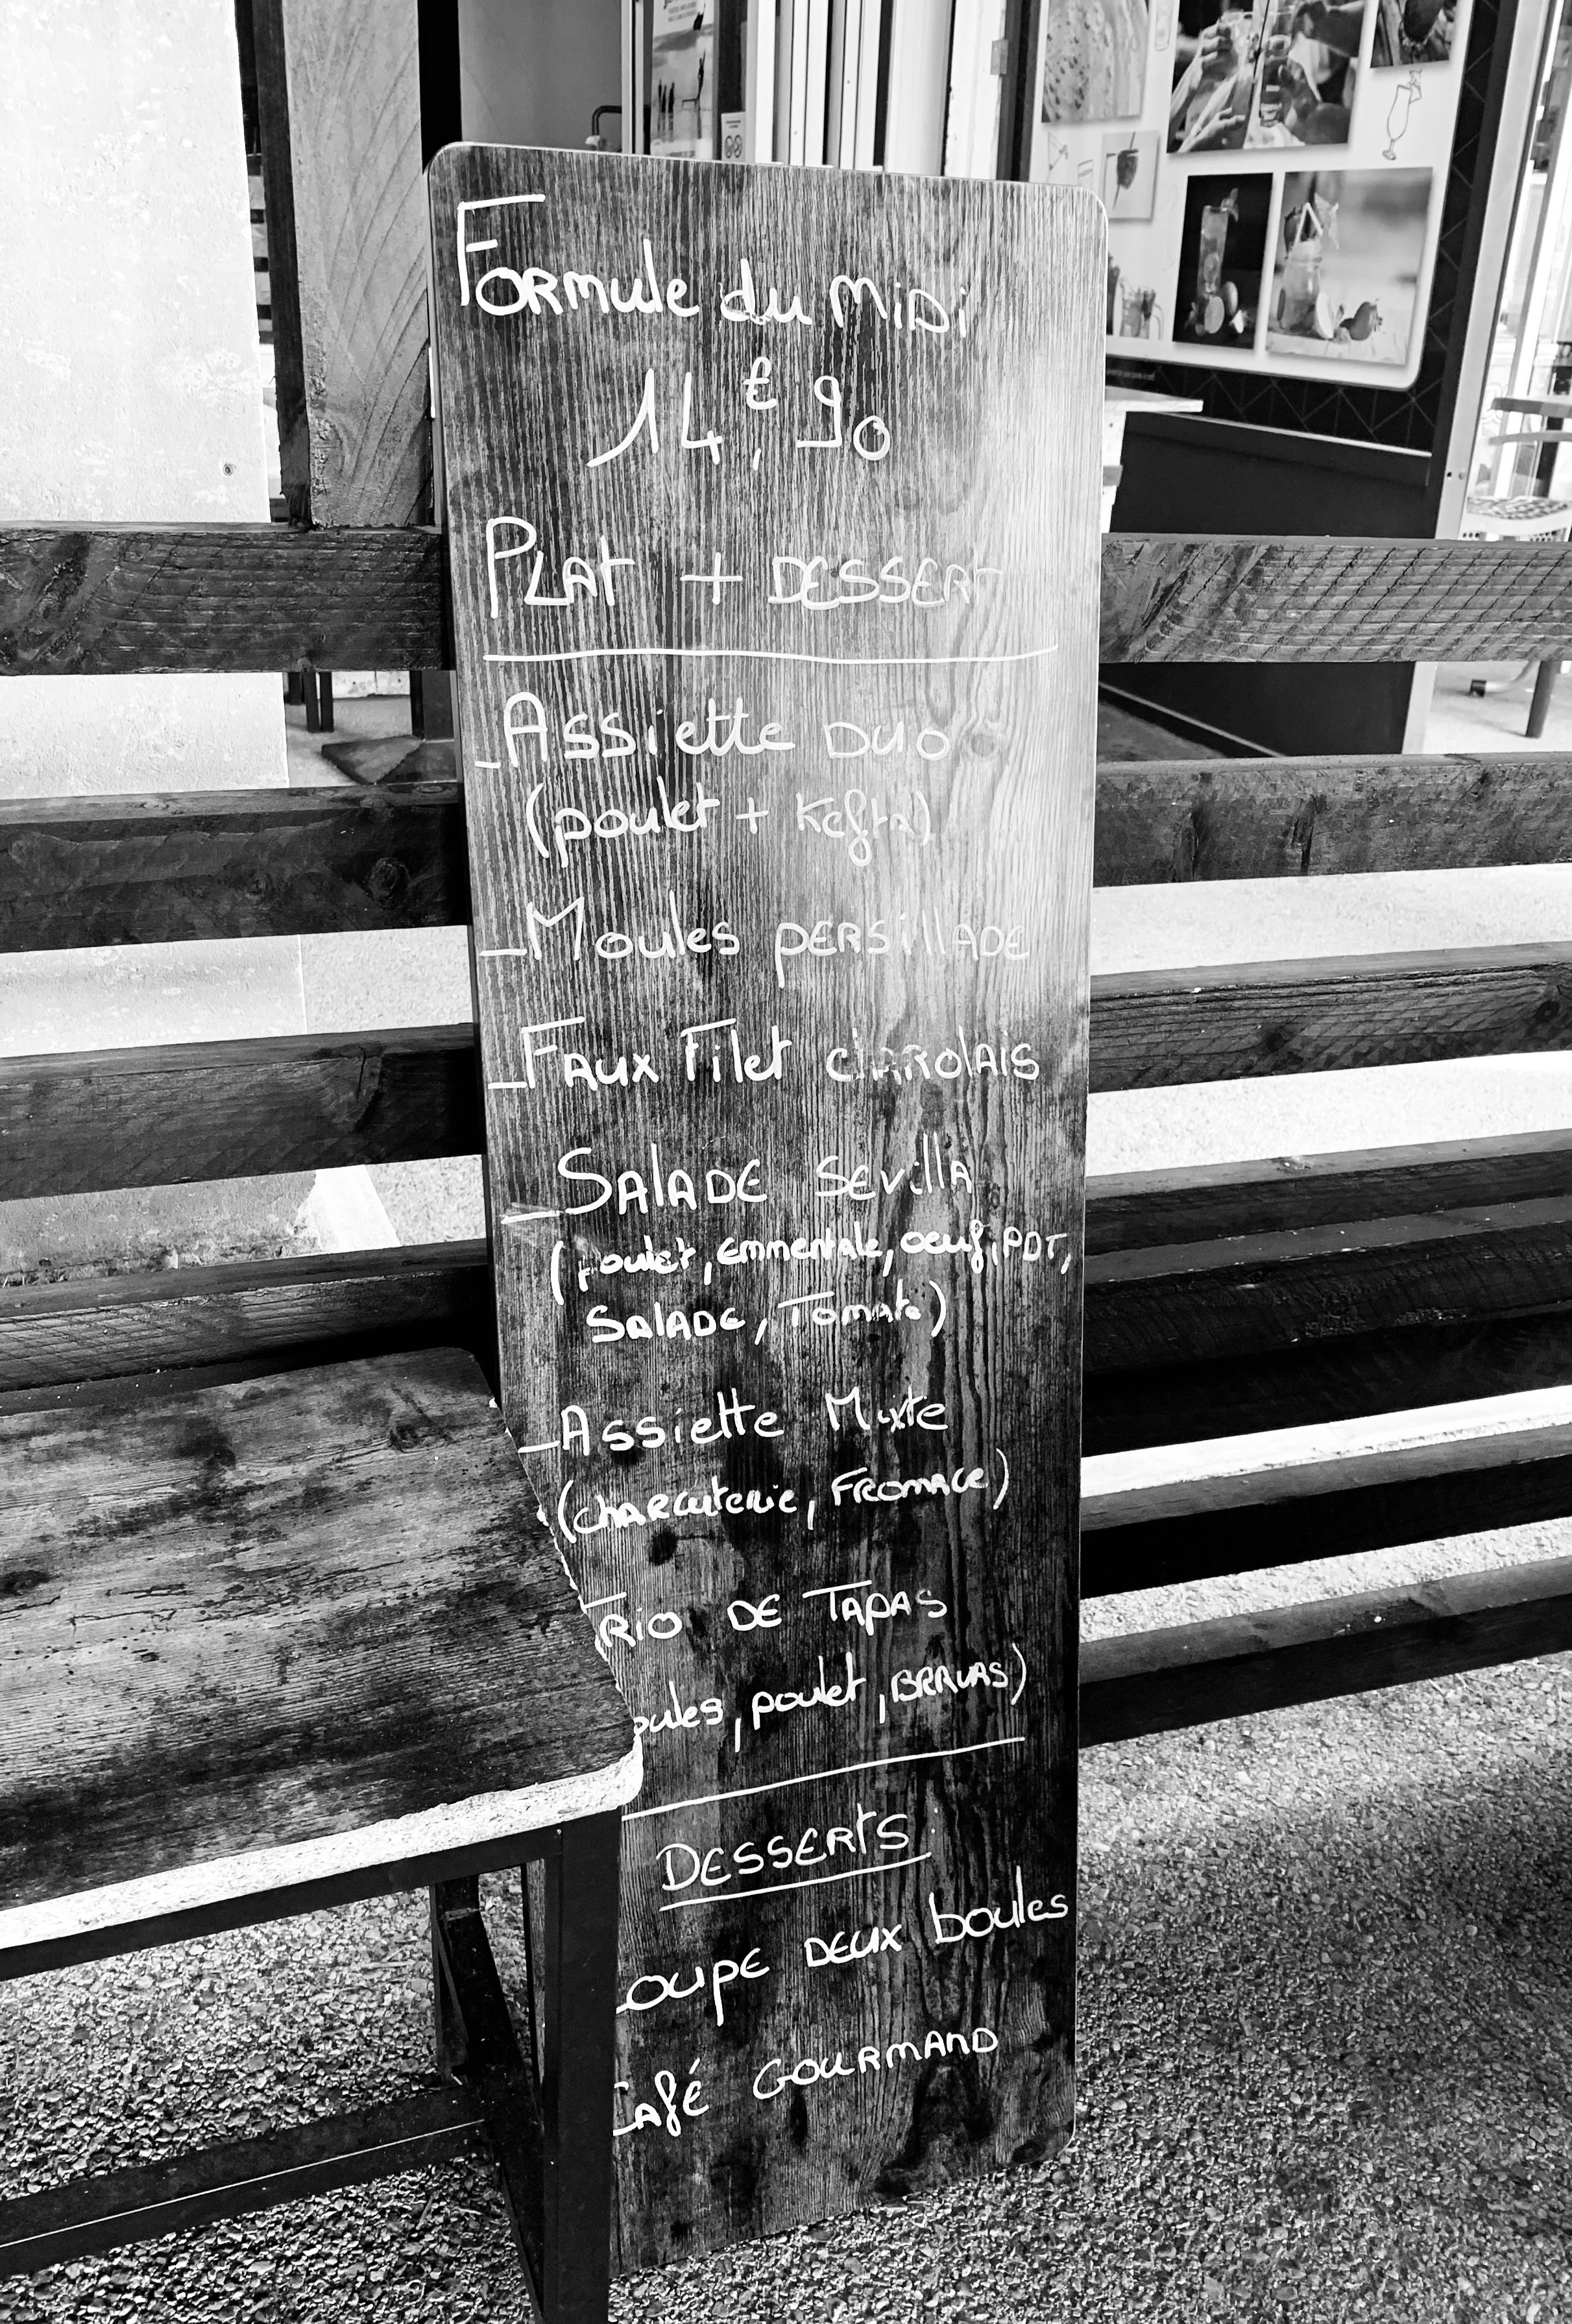 Formule du Midi
14,€90
Plat + Dessert
- Assiette Duo
(poulet + Kefta)
- Moules persillade
- Faux Filet charolais
- Salade Sevilla
(poulet, emmentale, oeuf, PDT,
Salade, Tomate)
- Assiette Mixte
(charcuterie, Fromage)
Trio de Tapas
oules, poulet, Bravas)
Desserts :
oupe deux boules
Café Gourmand